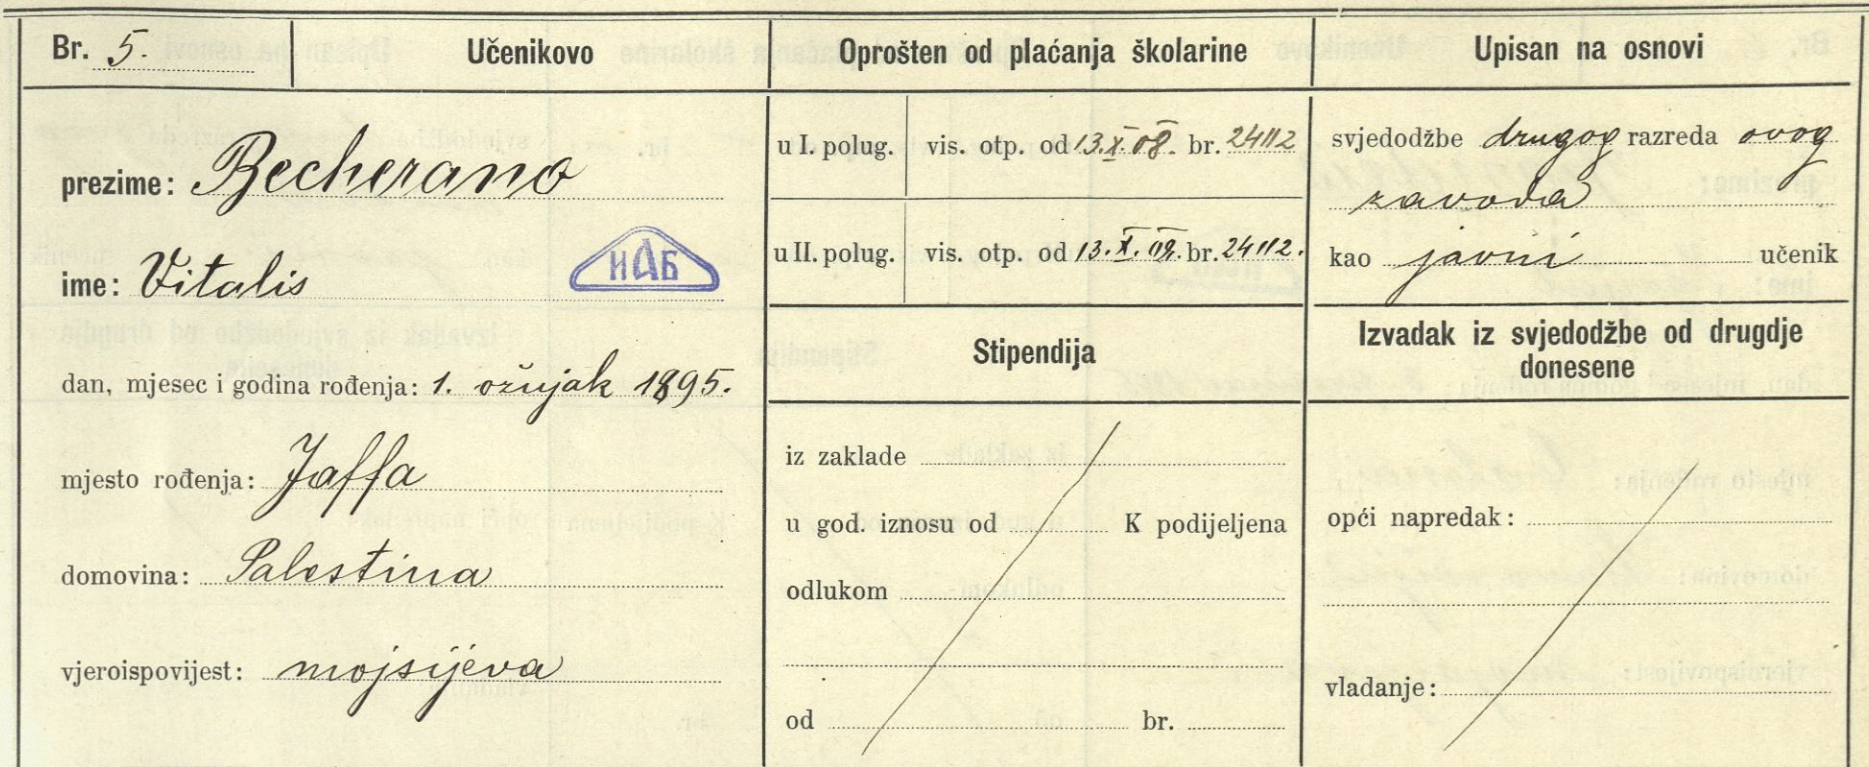 Br. 5.
Učenikovo
prezime: Becherano
ime: Vitalis
НАБ
dan, mjesec i godina rođenja: 1. ožujak 1895.
mjesto rođenja: Jaffa
domovina: Palestina
vjeroispovijest: mojsijeva
Oprošten od plaćanja školarine
u I. polug. vis. otp. od 13.X.08. br. 24112
u II. polug. vis. otp. od 13.X.08. br. 24112.
Stipendija
iz zaklade
u god. iznosu od K podijeljena
odlukom
od br.
Upisan na osnovi
svjedodžbe drugog razreda ovog
zavoda
kao javni učenik
Izvadak iz svjedodžbe od drugdje
donesene
opći napredak:
vladanje: